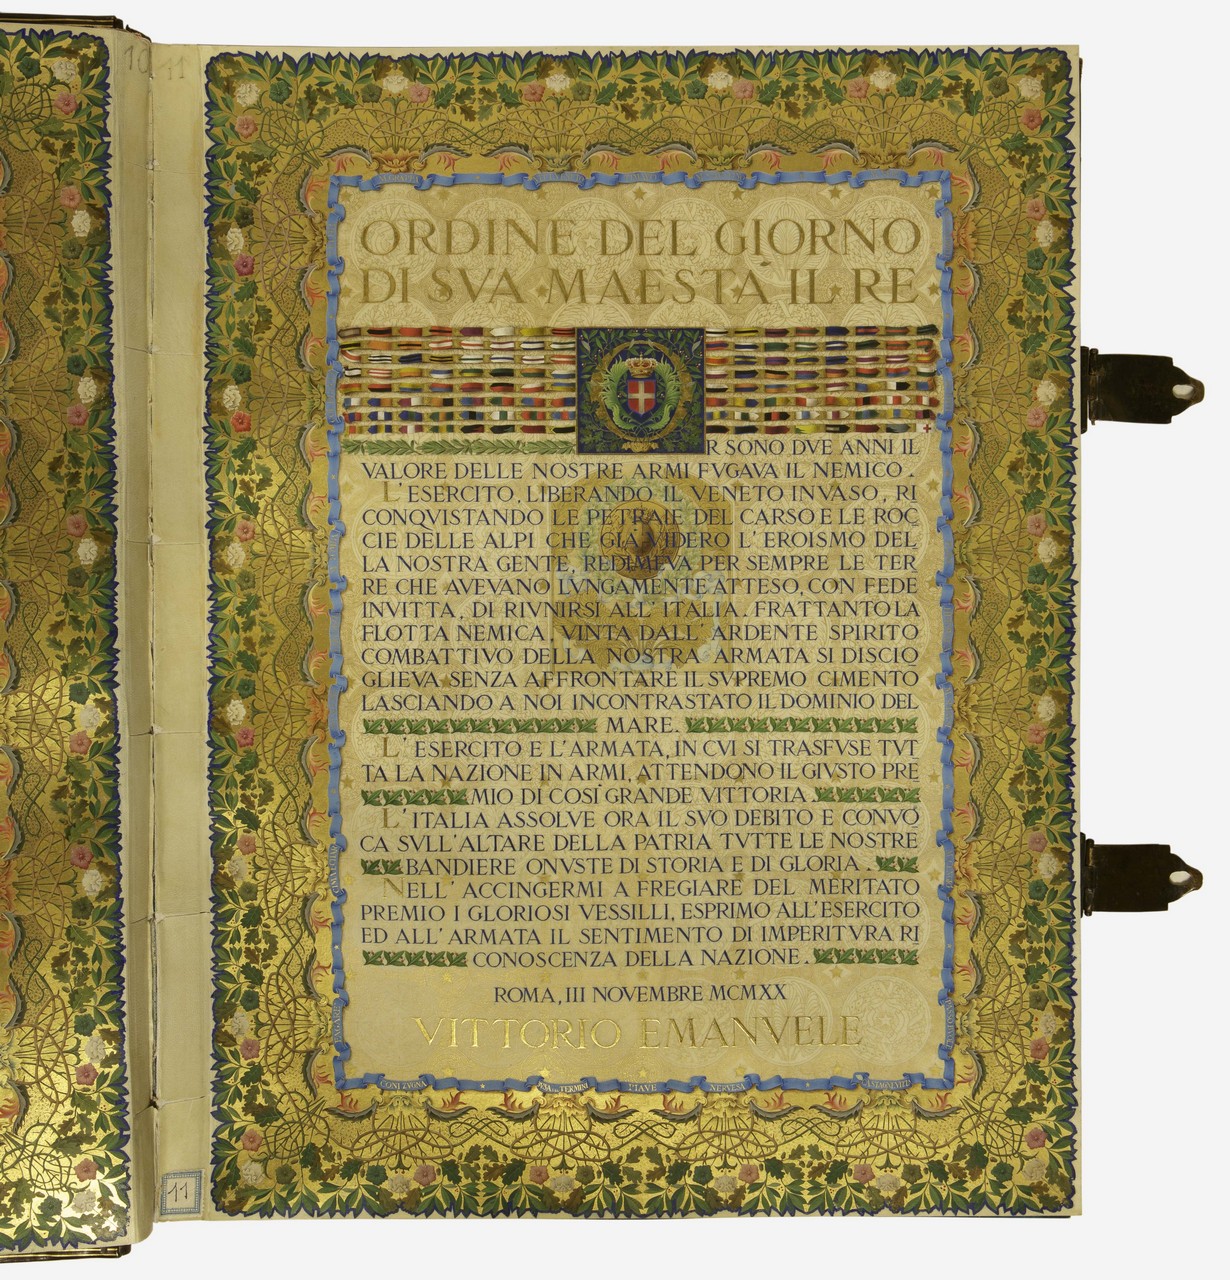 10 11
ORDINE DEL GIORNO
DI SVA MAESTA IL RE
R SONO DVE ANNI IL
VALORE DELLE NOSTRE ARMI FVGAVA IL NEMICO.
L'ESERCITO, LIBERANDO IL VENETO INVASO, RI
CONQVISTANDO LE PETRAIE DEL CARSO E LE ROC
CIE DELLE ALPI CHE GIA VIDERO L'EROISMO DEL
LA NOSTRA GENTE, REDIMEVA PER SEMPRE LE TER
RE CHE AVEVANO LVNGAMENTE ATTESO, CON FEDE
INVITTA, DI RIVNIRSI ALL'ITALIA. FRATTANTO LA
FLOTTA NEMICA, VINTA DALL'ARDENTE SPIRITO
COMBATTIVO DELLA NOSTRA ARMATA SI DISCIO
GLIEVA SENZA AFFRONTARE IL SVPREMO CIMENTO
LASCIANDO A NOI INCONTRASTATO IL DOMINIO DEL
MARE.
L'ESERCITO E L'ARMATA, IN CVI SI TRASFVSE TVT
TA LA NAZIONE IN ARMI, ATTENDONO IL GIVSTO PRE
MIO DI COSI' GRANDE VITTORIA.
L'ITALIA ASSOLVE ORA IL SVO DEBITO E CONVO
CA SVLL'ALTARE DELLA PATRIA TVTTE LE NOSTRE
BANDIERE ONVSTE DI STORIA E DI GLORIA.
NELL'ACCINGERMI A FREGIARE DEL MERITATO
PREMIO I GLORIOSI VESSILLI, ESPRIMO ALL'ESERCITO
ED ALL'ARMATA IL SENTIMENTO DI IMPERITVRA RI
CONOSCENZA DELLA NAZIONE.
ROMA, III NOVEMBRE MCMXX
VITTORIO EMANVELE
CONI ZVGNA
PIAVE
NERVESA
11